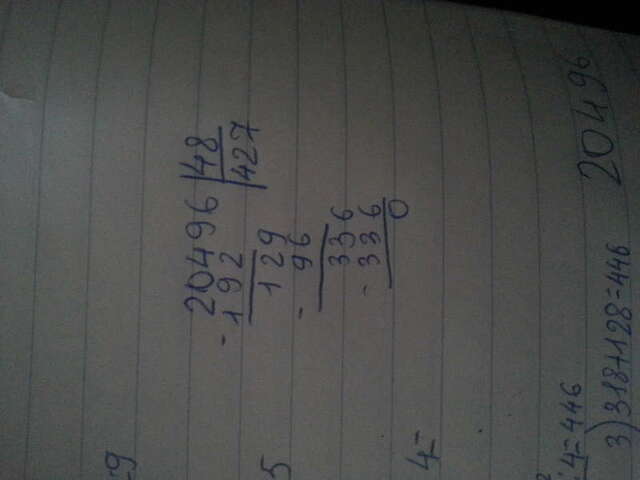 20496 |48
-192 |427
129
- 96
336
- 336
0
4=
4=446
3) 318+128=446
20496